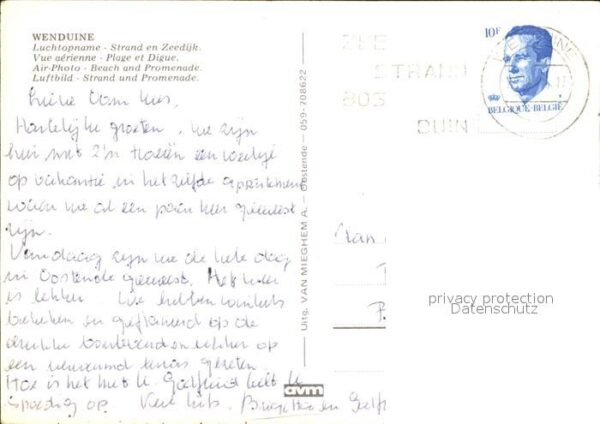 WENDUINE
Luchtopname - Strand en Zeedijk.
Vue aérienne - Plage et Digue.
Air-Photo - Beach and Promenade.
Luftbild - Strand und Promenade.
Lieve Oom Kees,
Hartelijke groeten. We zijn
hier met z'n tweeën een weekje
op vakantie in hetzelfde appartement
waar we al een paar keer geweest
zijn.
Vandaag zijn we de hele dag
in Oostende geweest. Het weer
is lekker. We hebben winkels
bekeken en geflaneerd op de
drukke boulevard en lekker op
een terras gegeten.
Hoe is het met U.
spoedig op. Veel liefs,
Uitg. VAN MIEGHEM A. - Oostende - 059-708622
avm
ZEE
STRAND
BOS
DUIN
10F
BELGIQUE BELGIË
Aan
privacy protection
Datenschutz